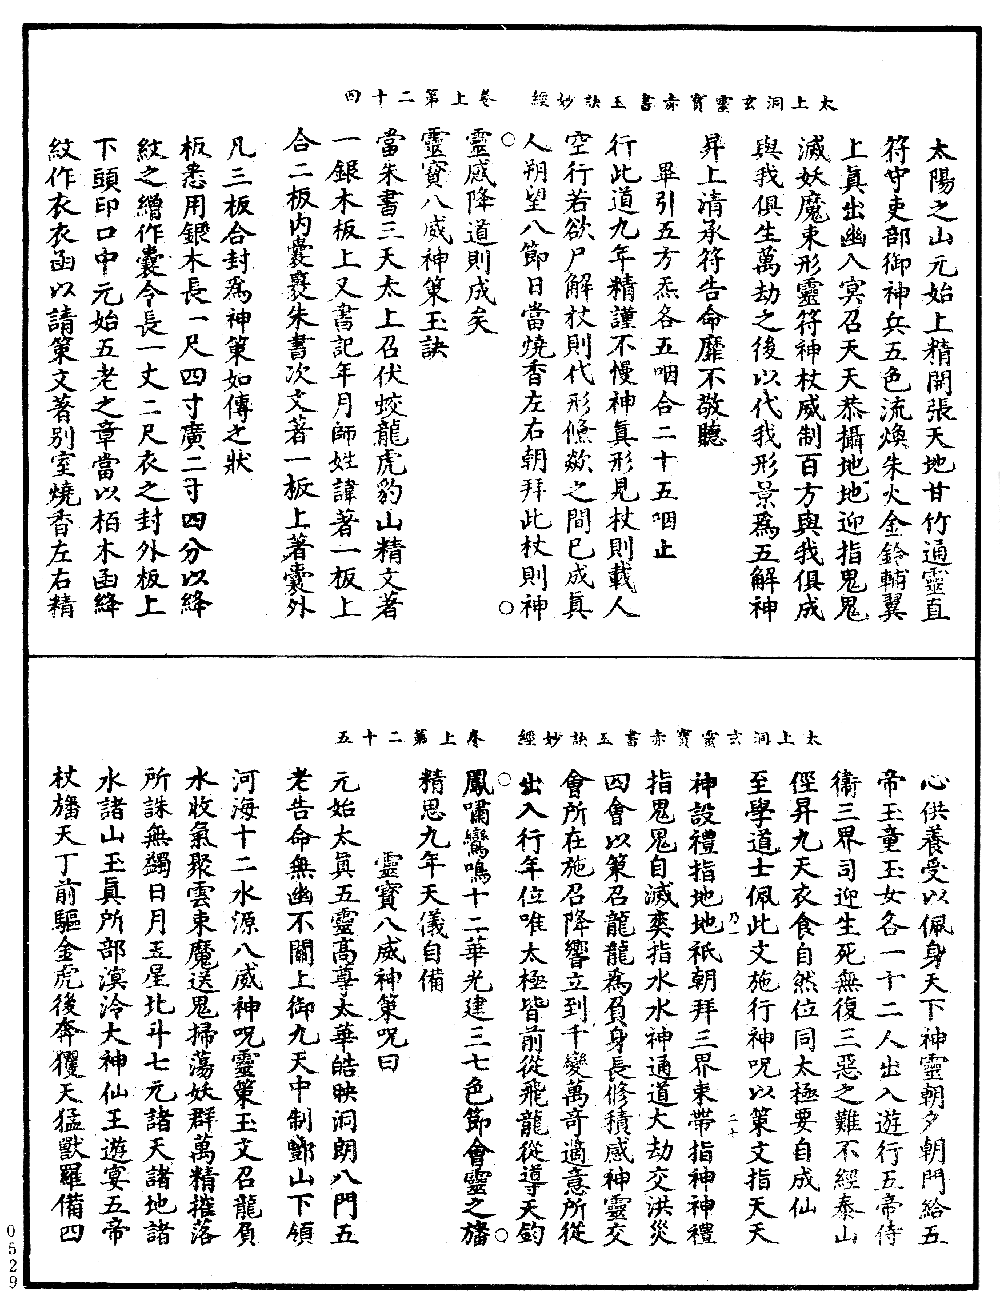 太上洞玄靈寶赤書玉訣妙經　卷上第二十四
太陽之山元始上精開張天地甘竹通靈直
符守吏部御神兵五色流煥朱火金鈴輔翼
上真出幽入冥召天天恭攝地地迎指鬼鬼
滅妖魔束形靈符神杖威制百方與我俱成
與我俱生萬劫之後以代我形景為五解神
昇上清承符告命靡不敬聽
畢引五方炁各五咽合二十五咽止
行此道九年精謹不慢神真形見杖則載人
空行若欲尸解杖則代形倏欻之間已成真
人朔望八節日當燒香左右朝拜此杖則神
靈感降道則成矣
靈寶八威神策玉訣
當朱書三天太上召伏蛟龍虎豹山精文著
一銀木板上又書記年月師姓諱著一板上
合二板內囊裹朱書次文著一板上著囊外
凡三板合封為神策如傳之狀
板悉用銀木長一尺四寸廣二寸四分以絳
紋之繒作囊令長一丈二尺衣之封外板上
下頭印口中元始五老之章當以柏木函絳
紋作衣衣函以請策文著別室燒香左右精
太上洞玄靈寶赤書玉訣妙經　卷上第二十五
心供養受以佩身天下神靈朝夕朝門給五
帝玉童玉女各一十二人出入遊行五帝侍
衛三界司迎生死無復三惡之難不經泰山
徑昇九天衣食自然位同太極要自成仙
至學道士佩此文施行神呪以策文指天天
神設禮指地地祇朝拜三界束帶指神神禮
指鬼鬼自滅奕指水水神通道大劫交洪災
四會以策召龍龍為負身長修積感神靈交
會所在施召降響立到千變萬奇適意所從
出入行年位唯太極皆前從飛龍從導天鈞
鳳嘯鸞鳴十二華光建三七色節會靈之旛
精思九年天儀自備
靈寶八威神策呪曰
元始太真五靈高尊太華皓映洞朗八門五
老告命無幽不關上御九天中制酆山下領
河海十二水源八威神呪靈策玉文召龍負
水收氣聚雲束魔送鬼掃蕩妖群萬精摧落
所誅無蠲日月五星北斗七元諸天諸地諸
水諸山玉真所部溟泠大神仙王遊宴五帝
杖旛天丁前驅金虎後奔玃天猛獸羅備四
0529